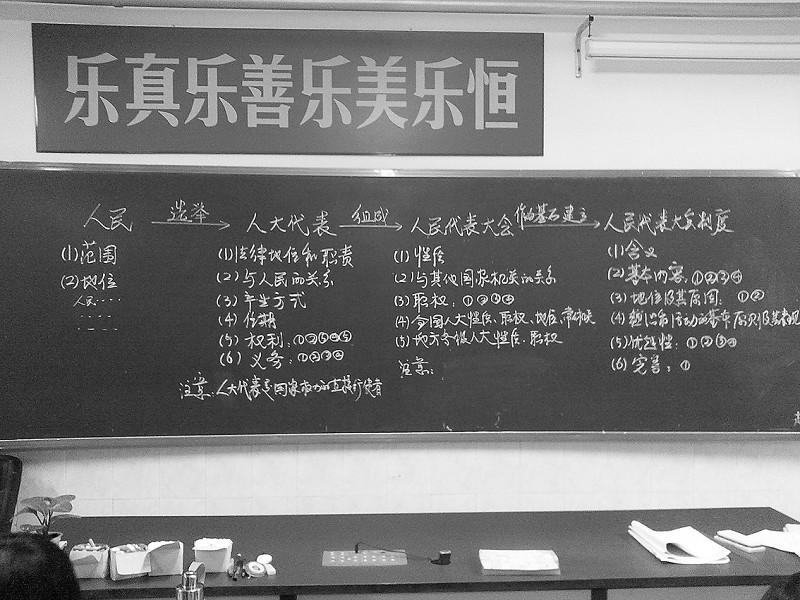 乐真乐善乐美乐恒
人民 选举 人大代表 组成 人民代表大会 作为基石建立 人民代表大会制度
(1)范围
(2)地位
人民·····
(1)法律地位和职责
(2)与人民的关系
(3)产生方式
(4)任期
(5)权利:①②③④⑤
(6)义务:①②③④
注意:人大代表是国家权力的直接行使者
(1)性质
(2)与其他国家机关的关系
(3)职权:①②③④
(4)全国人大性质、职权、地位、常设机关
(5)地方各级人大性质、职权
注意:
(1)含义
(2)基本内容:①②③④
(3)地位及其原因:①②
(4)政治活动的基本原则及其表现
(5)优越性:①②③④
(6)完善:①